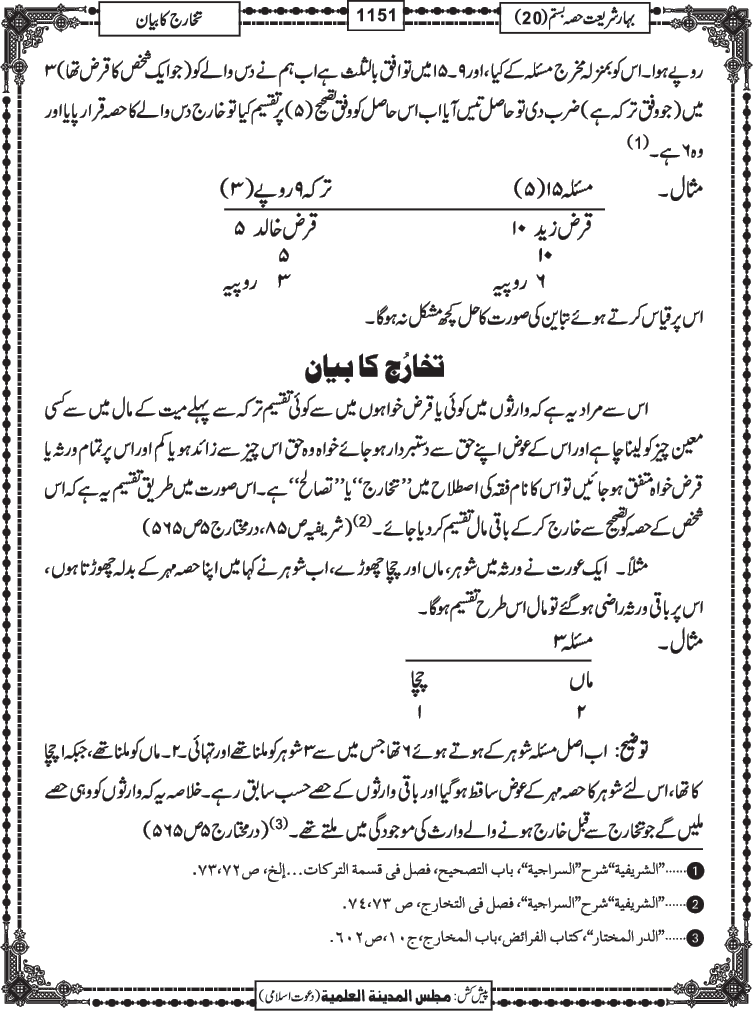 بہارِ شریعت حصہ بستم (20)
1151
تخارج کا بیان
روپے ہوا۔ اس کو بمنزلہ مخرج مسئلہ کے کیا، اور ۹۔۱۵ میں توافق بالثلث ہے اب ہم نے دس والے کو (جو ایک شخص کا قرض تھا) ۳
میں (جو وفق ترکہ ہے) ضرب دی تو حاصل تیس آیا اب اس حاصل کو وفق تصحیح (۵) پر تقسیم کیا تو خارج دس والے کا حصہ قرار پایا اور
وہ ۶ ہے۔ (1)
مثال۔ مسئلہ ۱۵ (۵) ترکہ ۹ روپے (۳)
قرض زید ۱۰ قرض خالد ۵
۱۰ ۵
۶ روپیہ ۳ روپیہ
اس پر قیاس کرتے ہوئے تباین کی صورت کا حل کچھ مشکل نہ ہوگا۔
تخارُج کا بیان
اس سے مراد یہ ہے کہ وارثوں میں کوئی یا قرض خواہوں میں سے کوئی تقسیم ترکہ سے پہلے میت کے مال میں سے کسی
معین چیز کو لینا چاہے اور اس کے عوض اپنے حق سے دستبردار ہو جائے خواہ وہ حق اس چیز سے زائد ہو یا کم اور اس پر تمام ورثہ یا
قرض خواہ متفق ہو جائیں تو اس کا نام فقہ کی اصطلاح میں ’’تخارج‘‘ یا ’’تصالح‘‘ ہے۔ اس صورت میں طریق تقسیم یہ ہے کہ اس
شخص کے حصہ کو تصحیح سے خارج کر کے باقی مال تقسیم کر دیا جائے۔ (2) (شریفیہ ص ۸۵، درمختار ج ۵ ص ۵۶۵)
مثلاً۔ ایک عورت نے ورثہ میں شوہر، ماں اور چچا چھوڑے، اب شوہر نے کہا میں اپنا حصہ مہر کے بدلہ چھوڑتا ہوں،
اس پر باقی ورثہ راضی ہو گئے تو مال اس طرح تقسیم ہوگا۔
مثال۔ مسئلہ ۳
ماں چچا
۲ ۱
توضیح: اب اصل مسئلہ شوہر کے ہوتے ہوئے ۶ تھا جس میں سے ۳ شوہر کو ملنا تھے اور تہائی۔ ۲۔ ماں کو ملنا تھے، جبکہ ۱ چچا
کا تھا، اس لئے شوہر کا حصہ مہر کے عوض ساقط ہو گیا اور باقی وارثوں کے حصے حسب سابق رہے۔ خلاصہ یہ کہ وارثوں کو وہی حصے
ملیں گے جو تخارج سے قبل خارج ہونے والے وارث کی موجودگی میں ملتے تھے۔ (3) (درمختار ج ۵ ص ۵۶۵)
1 ......”الشریفیة“ شرح ”السراجیة“، باب التصحیح، فصل فی قسمة الترکات...إلخ، ص ۷۲، ۷۳.
2 ......”الشریفیة“ شرح ”السراجیة“، فصل فی التخارج، ص ۷۳، ۷٤.
3 ......”الدر المختار“، کتاب الفرائض، باب المخارج، ج ۱۰، ص ٦۰۲.
پیش کش: مجلس المدینۃ العلمیۃ (دعوتِ اسلامی)